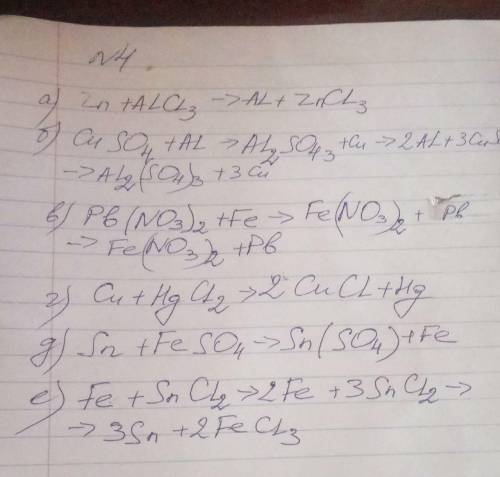 N4.
а) Zn + ALCL3 -> AL + ZnCL3
б) CuSO4 + AL -> AL2SO43 + Cu -> 2AL + 3CuS
-> AL2(SO4)3 + 3Cu
в) Pb(NO3)2 + Fe -> Fe(NO3)2 + Pb
-> Fe(NO3)2 + Pb
г) Cu + HgCL2 -> 2CuCL + Hg
д) Sn + FeSO4 -> Sn(SO4) + Fe
е) Fe + SnCL2 -> 2Fe + 3SnCL2 ->
-> 3Sn + 2FeCL3